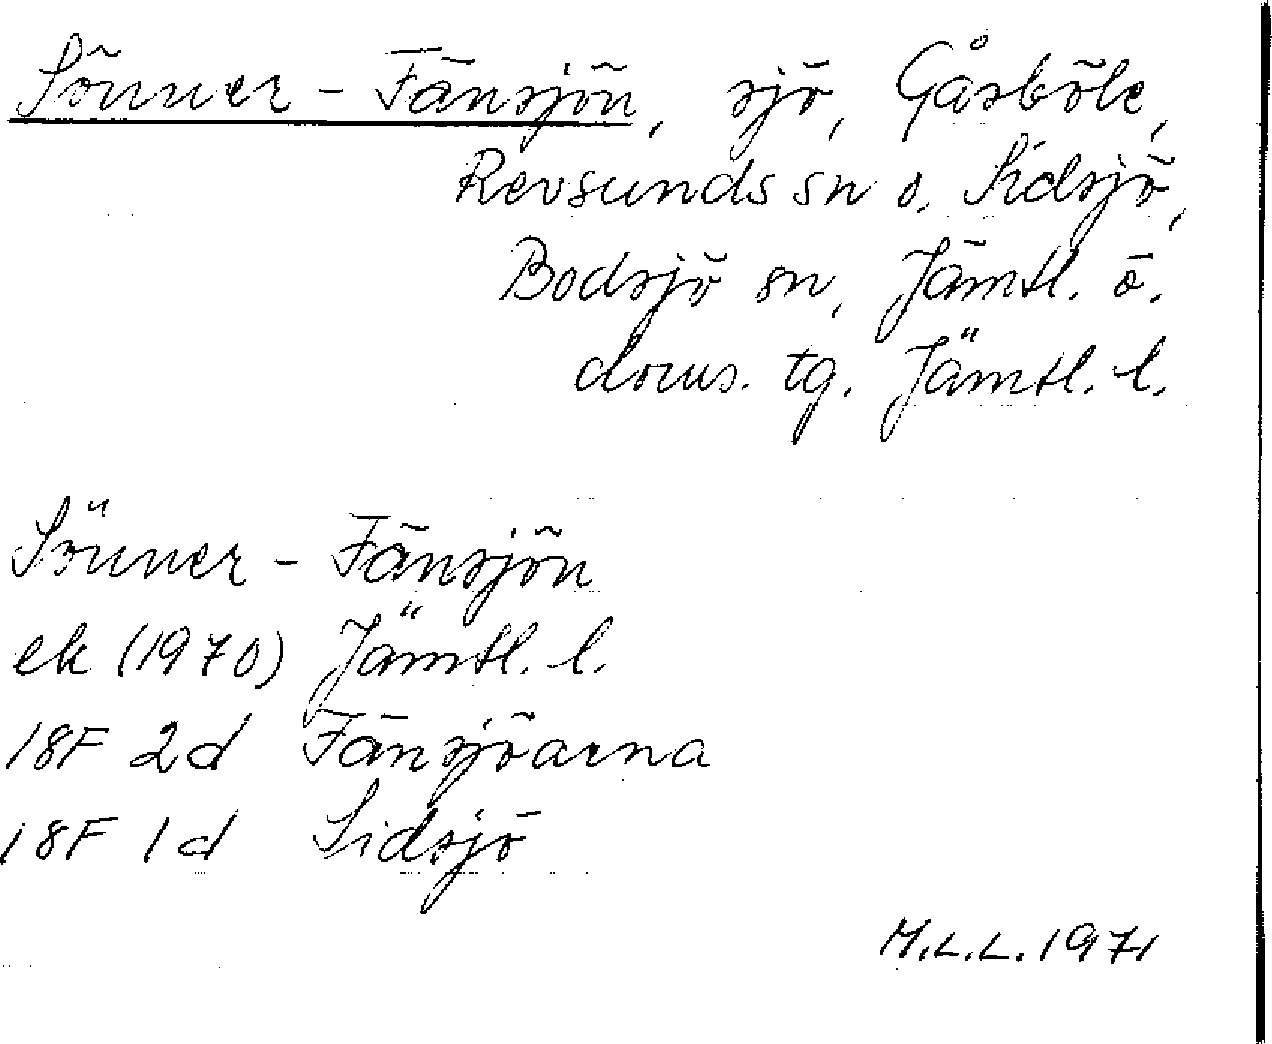 Sönner-Fänsjön, sjö, Gåsböle,
Revsunds sn o. Sidsjö,
Bodsjö sn, Jämtl. ö.
doms. tg. Jämtl. l.
Sönner-Fänsjön
ek (1970) Jämtl. l.
18F 2d Fänsjöarna
18F 1d Sidsjö
M.L.L. 1971